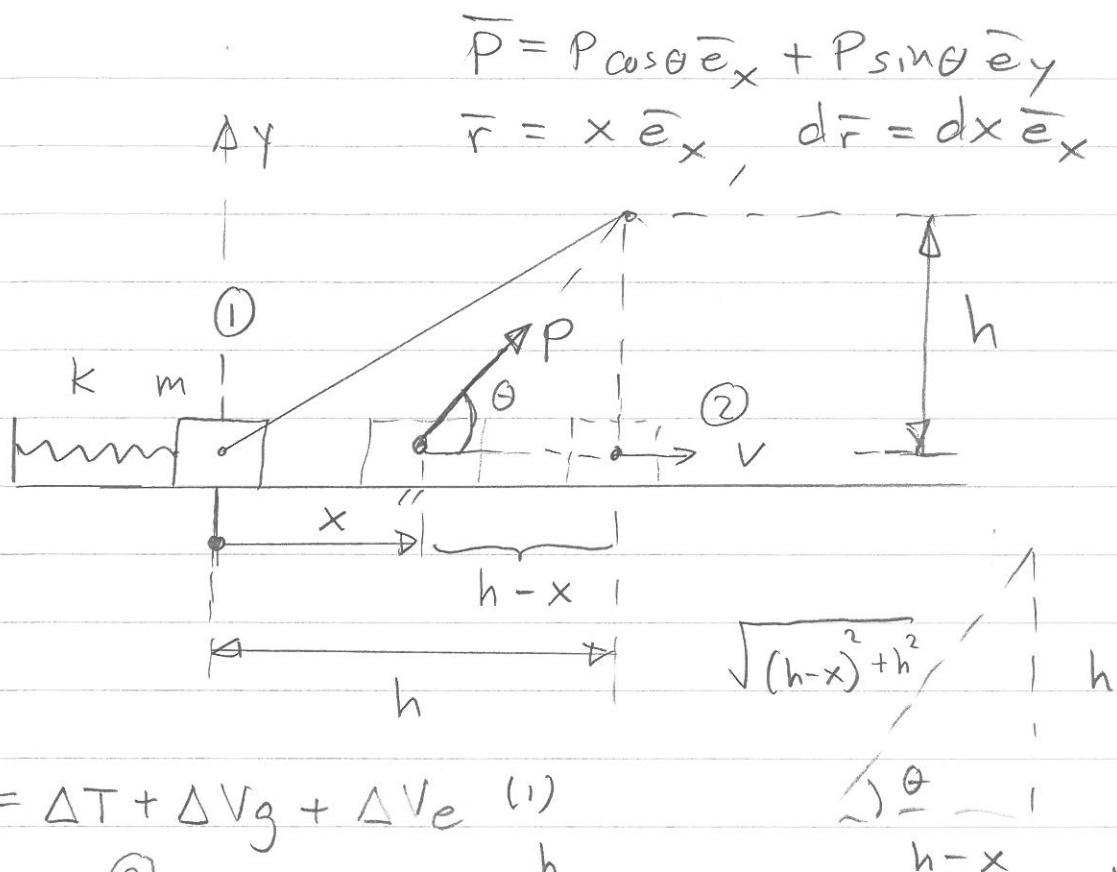 P̅ = P cosθ e̅ₓ + P sinθ e̅_y
r̅ = x e̅ₓ, dr̅ = dx e̅ₓ
y
①
P
h
k m
θ
②
v
x
h - x
√((h-x)² + h²)
h
h
θ
= ΔT + ΔVg + ΔVe (1)
h
h - x